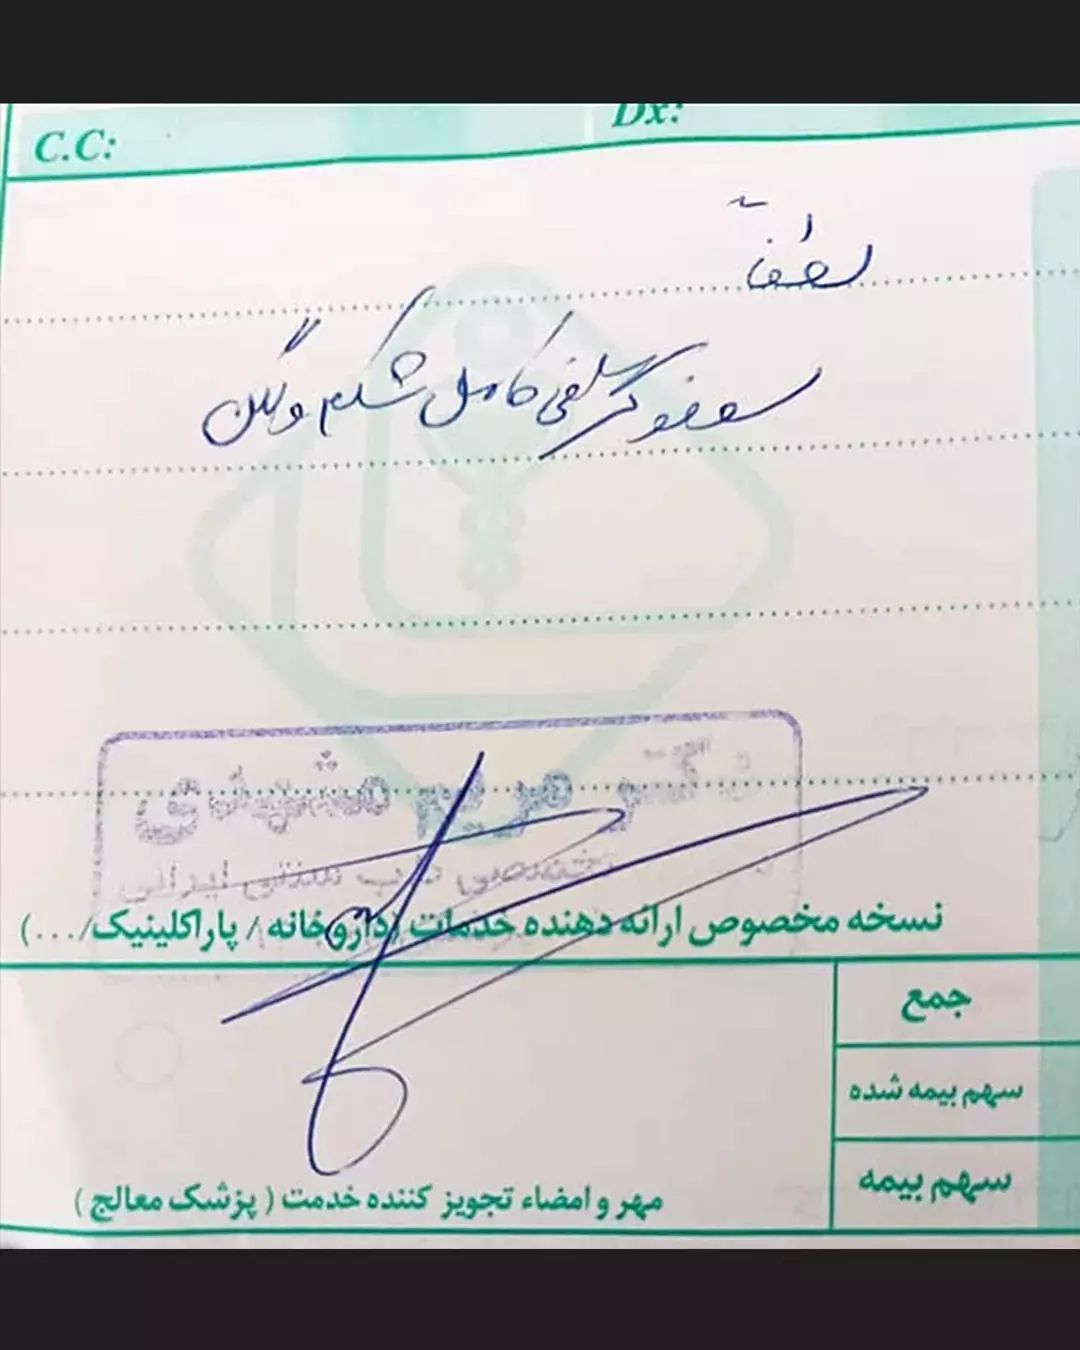 C.C:
Dx:
لطفاً
سونوگرافی کامل شکم و لگن
دکتر مریم مشهدی
تخصصی طب سنتی ایرانی
نسخه مخصوص ارائه دهنده خدمات (داروخانه / پاراکلینیک/...)
جمع
سهم بیمه شده
سهم بیمه
مهر و امضاء تجویز کننده خدمت ( پزشک معالج )